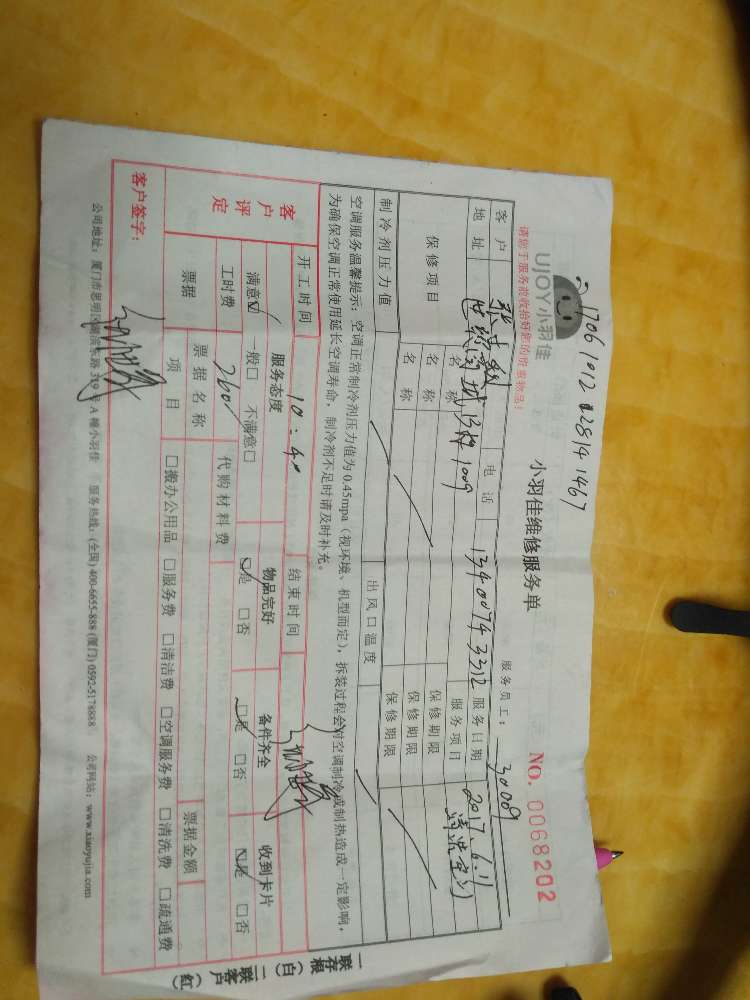 17061012028141467
UJOY小羽佳
小羽佳维修服务单
NO. 0068202
请您于服务前收拾好您的贵重物品!
服务员工: 30009
客户 电话 13400743312 服务日期 2017.6.11
地址 1009 服务项目 清洗空调
保修项目 名称 保修期限
名称 保修期限
名称 保修期限
制冷剂压力值 出风口温度
空调服务温馨提示: 空调正常制冷剂压力值为0.45mpa (视环境、机型而定), 拆装过程会对空调制冷或制热造成一定影响,
为确保空调正常使用延长空调寿命, 制冷剂不足时请及时补充。
客户评定
开工时间 10:40 结束时间
服务态度 物品完好 备件齐全 收到卡片
满意☑ 一般□ 不满意□ ☑是 □否 ☑是 □否 ☑是 □否
工时费 260 代购材料费
票据 票据名称 票据金额
项目 □搬办公用品 □服务费 □清洁费 □空调服务费 □清洗费 □疏通费
客户签字:
一联存根(白) 二联客户(红)
公司地址: 厦门市思明区湖滨东路319号A幢小羽佳 服务热线: (全国) 400-6655-888 (厦门) 0592-5178888 公司网站: www.xiaoyujia.com